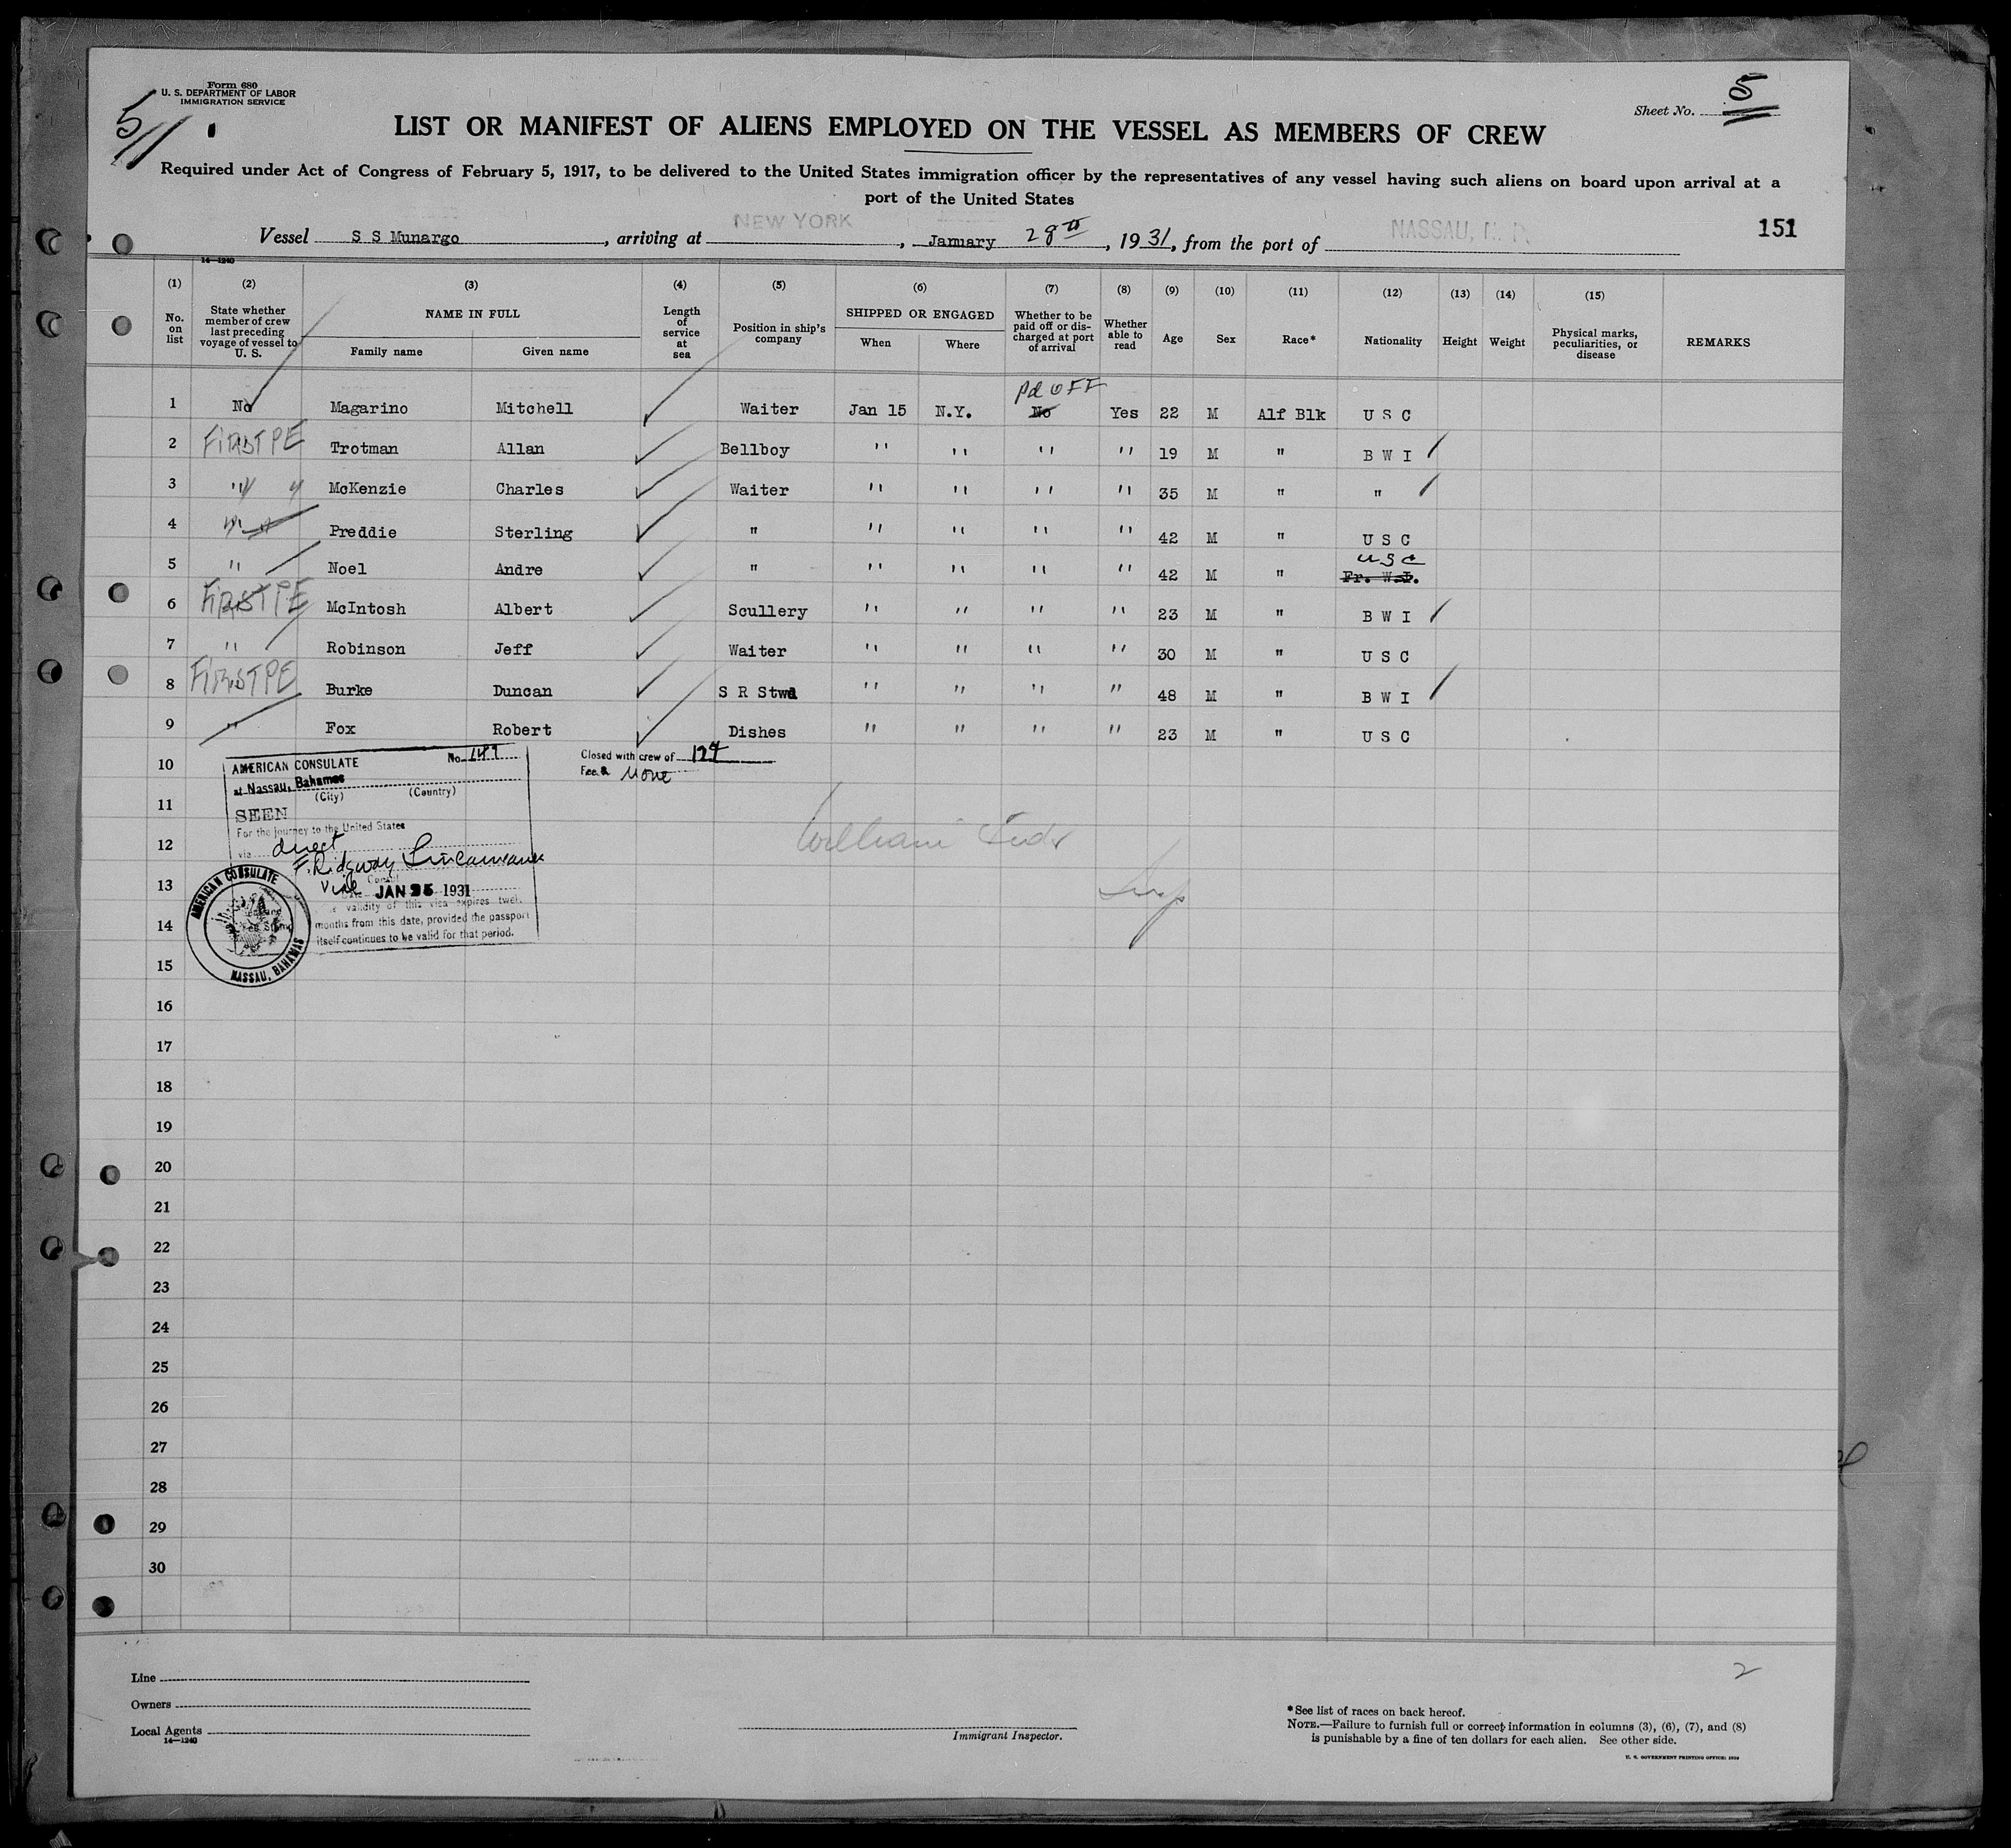 Form 680
U. S. DEPARTMENT OF LABOR
IMMIGRATION SERVICE
5/1
Sheet No. 5
LIST OR MANIFEST OF ALIENS EMPLOYED ON THE VESSEL AS MEMBERS OF CREW
Required under Act of Congress of February 5, 1917, to be delivered to the United States immigration officer by the representatives of any vessel having such aliens on board upon arrival at a
port of the United States
Vessel S S Munargo, arriving at NEW YORK, January 28th, 1931, from the port of NASSAU, N. P.
151
14—1240
(1) (2) (3) (4) (5) (6) (7) (8) (9) (10) (11) (12) (13) (14) (15)
No. on list
State whether member of crew last preceding voyage of vessel to U. S.
NAME IN FULL
Family name
Given name
Length of service at sea
Position in ship's company
SHIPPED OR ENGAGED
When
Where
Whether to be paid off or discharged at port of arrival
Whether able to read
Age
Sex
Race*
Nationality
Height
Weight
Physical marks, peculiarities, or disease
REMARKS
Pd OFF
1 No Magarino Mitchell Waiter Jan 15 N.Y. No Yes 22 M Alf Blk U S C
2 FIRST PE Trotman Allan Bellboy " " " " 19 M " B W I
3 " McKenzie Charles Waiter " " " " 35 M " "
4 " Preddie Sterling " " " " " 42 M " U S C
5 " Noel Andre " " " " " 42 M " Fr. W.I. U S C
6 FIRST PE McIntosh Albert Scullery " " " " 23 M " B W I
7 " Robinson Jeff Waiter " " " " 30 M " U S C
8 FIRST PE Burke Duncan S R Stwd " " " " 48 M " B W I
9 " Fox Robert Dishes " " " " 23 M " U S C
10
11
12
13
14
15
16
17
18
19
20
21
22
23
24
25
26
27
28
29
30
AMERICAN CONSULATE No.
at Nassau, Bahamas
(City) (Country)
SEEN
For the journey to the United States
via direct
F. Ridgway
Vice Consul
JAN 25 1931
validity of this visa expires twel
months from this date, provided the passport
itself continues to be valid for that period.
AMERICAN CONSULATE
NASSAU, BAHAMAS
Closed with crew of 127
Fee $ None
William
Insp
Line
Owners
Local Agents
14—1240
Immigrant Inspector.
2
*See list of races on back hereof.
NOTE.—Failure to furnish full or correct information in columns (3), (6), (7), and (8)
is punishable by a fine of ten dollars for each alien. See other side.